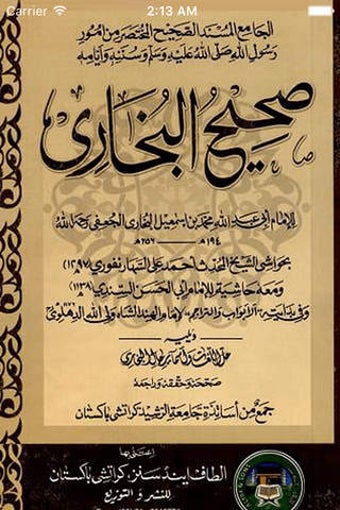 Carrier 2:13 AM
الجامع المسند الصحيح المختصر من أمور
رسول الله صلى الله عليه وسلم وسننه وأيامه
صحيح البخاري
للإمام أبي عبد الله محمد بن إسمعيل البخاري الجعفي رحمه الله
١٩٤هـ — ٢٥٦هـ
بحواشي الشيخ المحدث أحمد علي السهارنفوري (١٢٩٧هـ)
ومعه حاشية للإمام أبي الحسن السندي (١١٣٨هـ)
وفي بدايته الأبواب والتراجم لإمام الهند الشاه ولي الله الدهلوي
ويليه
حل اللغات وأسماء رجال البخاري
صححه وحققه وراجعه
جمع من أساتذة جامعة الرشيد كراتشي باكستان
اعتنى بها
الطاف ايند سنز، كراتشي باكستان
للنشر والتوزيع